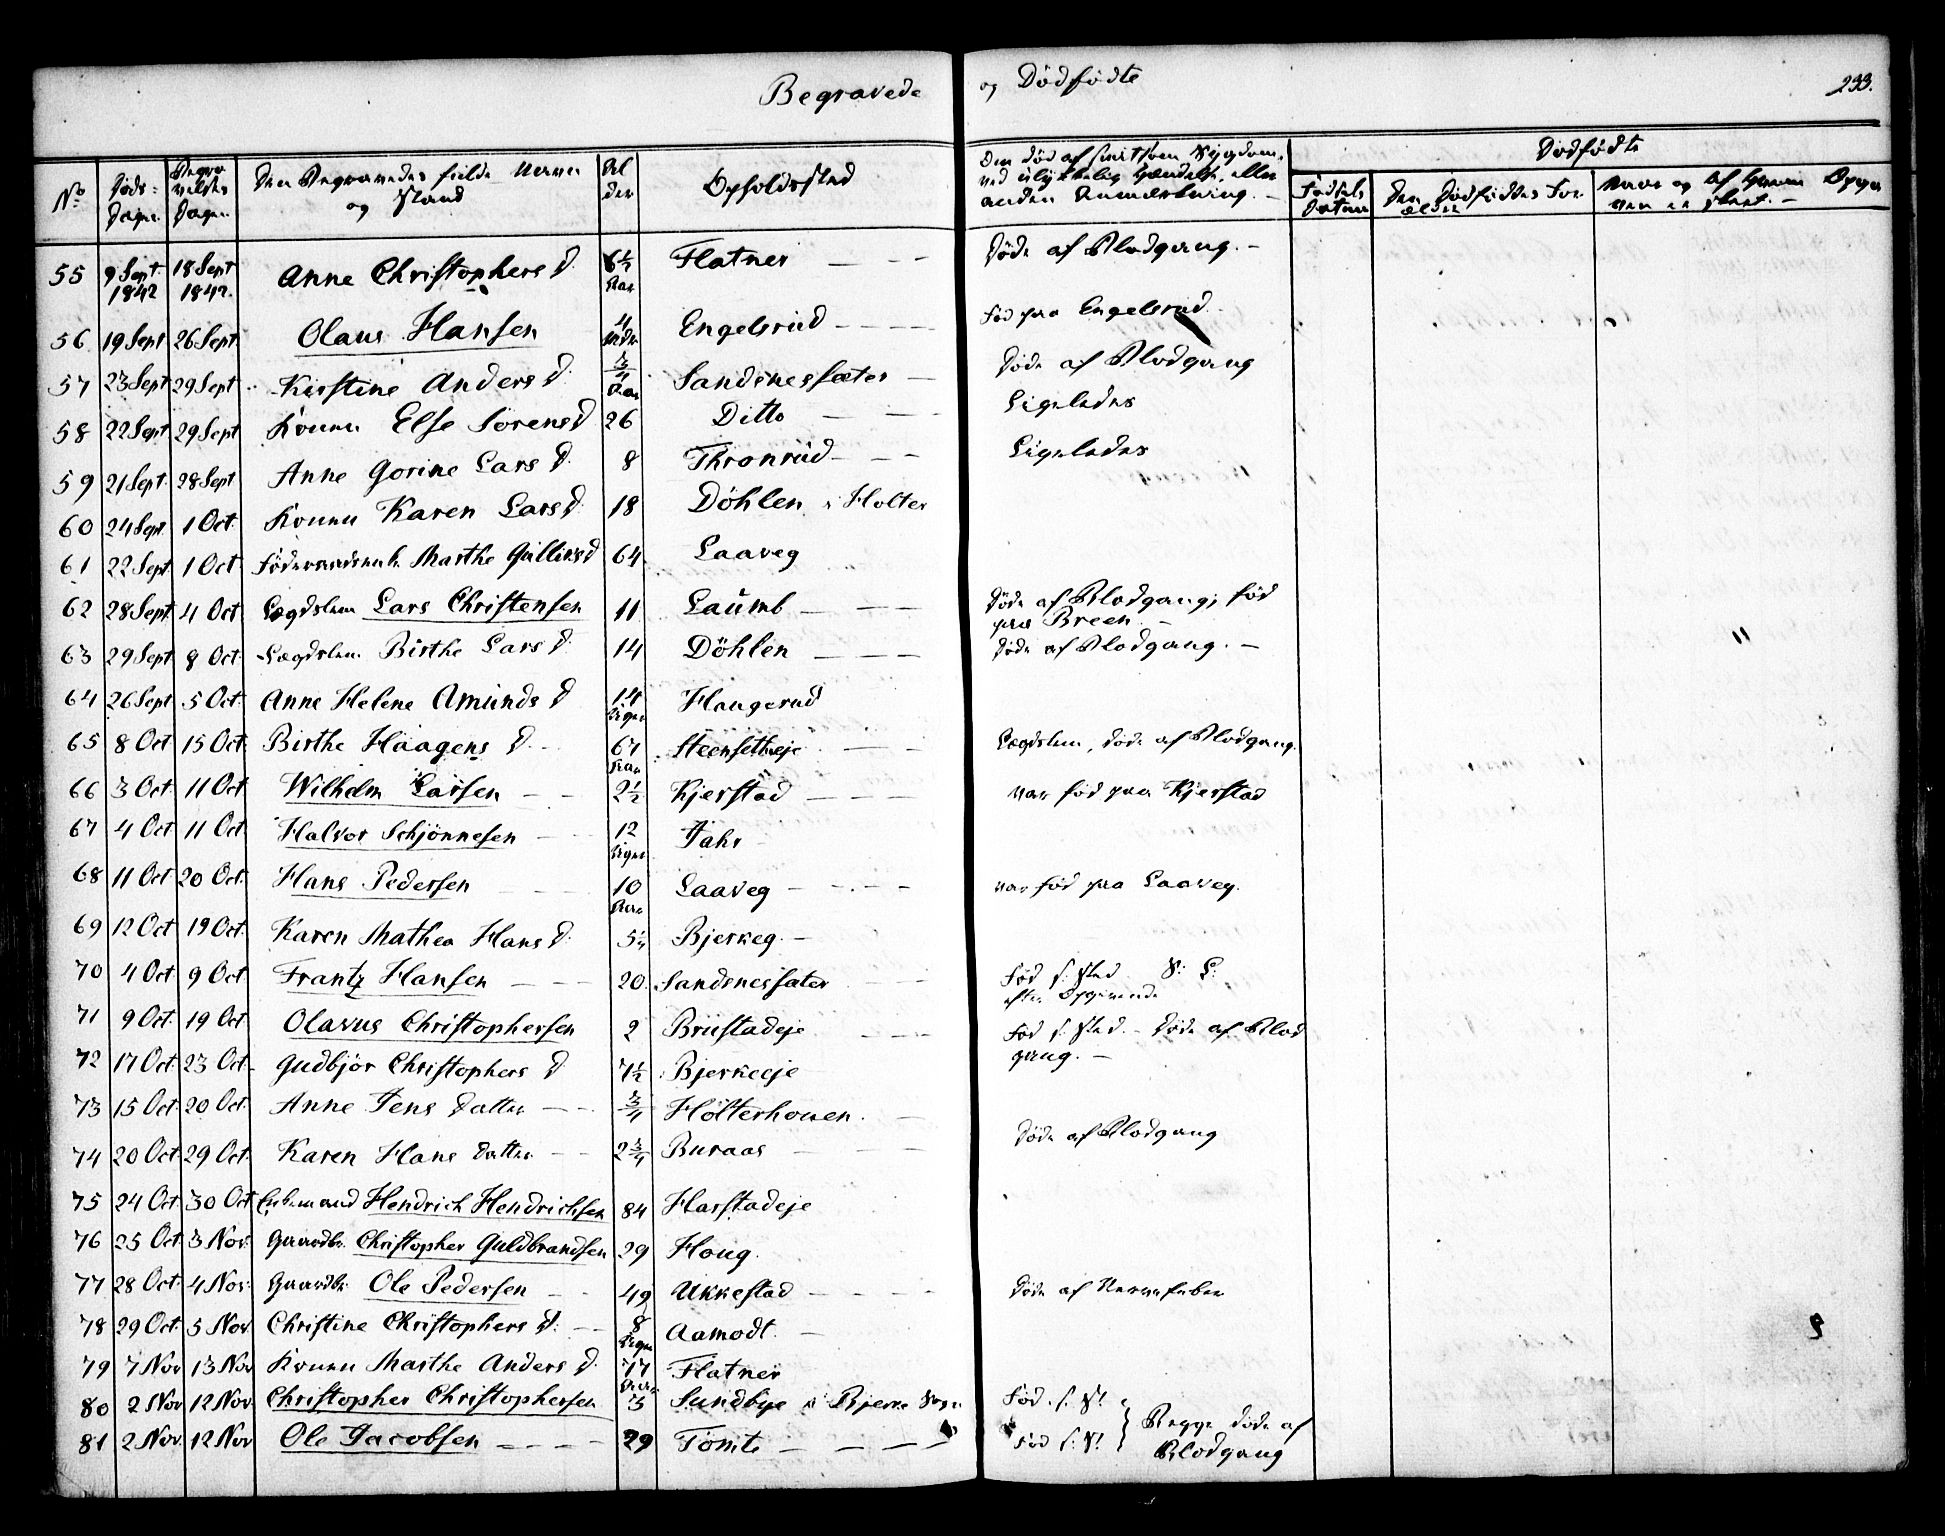 Begravede og Dødfødte
233.
No Døds-Dagen Begravelses Dagen Den Begravedes fulde Navn og Stand Alder Opholdssted Den død af smitsom Sygdom, ved ulykkelig Hændelse, eller anden Anmærkning. Dødfødte
Fødsels Datum Den Dødfødtes Forældre
55 9 Sept 1842 18 Sept 1842. Anne Christophers D. 6½ Aar Flatner — Døde af Blodgang. —
56 19 Sept 26 Sept Olaus Hansen 4 Engelsrud — Fød paa Engelsrud
57 23 Sept 29 Sept Kirstine Anders D. ¾ Aar Sandsnessæter — Døde af Blodgang
58 22 Sept 29 Sept Konen Else Sørens D 26 Ditto — Ligeledes
59 21 Sept 28 Sept Anne Gorine Lars D. 8 Thronrud — Ligeledes
60 24 Sept. 1 Oct. Konen Karen Lars D. 18 Døhlen i Holter
61 22 Sept 1 Oct Føderaadsenke Marthe Gulliks D 64 Laaveg
62 28 Sept 4 Oct. Lægdslem Lars Christensen 11 Laumb — Døde af Blodgang; fød paa Breen. —
63 29 Sept 8 Oct. Lægdslem. Birthe Lars D. 14 Døhlen — Døde af Blodgang. —
64 26 Sept 5 Oct. Anne Helene Amunds D 14 Uger Haugerud
65 8 Oct 15 Oct. Birthe Haagens D. 67 Aar Steensetheje — Lægdslem, døde af Blodgang.
66 3 Oct. 11 Oct Wilhelm Larsen — 2½ Kjerstad — var fød paa Kjerstad
67 4 Oct 11 Oct. Halvor Schjønnesen — 12 Uger Jahr
68 11 Oct 20 Oct. Hans Pedersen — 10 Aar Laaveg — var fød paa Laaveg.
69 12 Oct 19 Oct. Karen Mathea Hans D. 5¼ Bjerkeg. —
70 4 Oct 9 Oct. Frantz Hansen — 20. Sandsnessæter — Fød s: Sted S: L: efter Opgivende
71 9 Oct. 19 Oct. Olavus Christophersen 2 Brustadeje — Fød s. Sted. — Døde af Blodgang. —
72 17 Oct. 23 Oct. Gudbjør Christophers D 7½ Bjerkeeje
73 15 Oct. 20 Oct. Anne Jens Datter — ¾ Holterhouen. —
74 20 Oct. 29 Oct. Karen Hans Datter — 2¾ Buraas — Døde af Blodgang
75 24 Oct. 30 Oct. Enkemand Hendrich Hendrichsen 84 Harstadeje
76 25 Oct. 3 Nov. Gaardbr. Christopher Guldbrandsen 29 Houg.
77 28 Oct. 4 Nov. Gaardbr Ole Pedersen — 49 Ukkestad — Døde af Nervefeber
78 29 Oct. 5 Nov. Christine Christophers D. — 8 Uger Aamodt. —
79 7 Nov 13 Nov Konen Marthe Anders D. 77 Aar Flatner
80 2 Nov 12 Nov. Christopher Christophersen 3 Sundbye i Bjerke Sogn Fød. s. St.
81 2 Nov. 12 Nov Ole Jacobsen — 29 Tømte — Fød s: St. } Begge døde af Blodgang